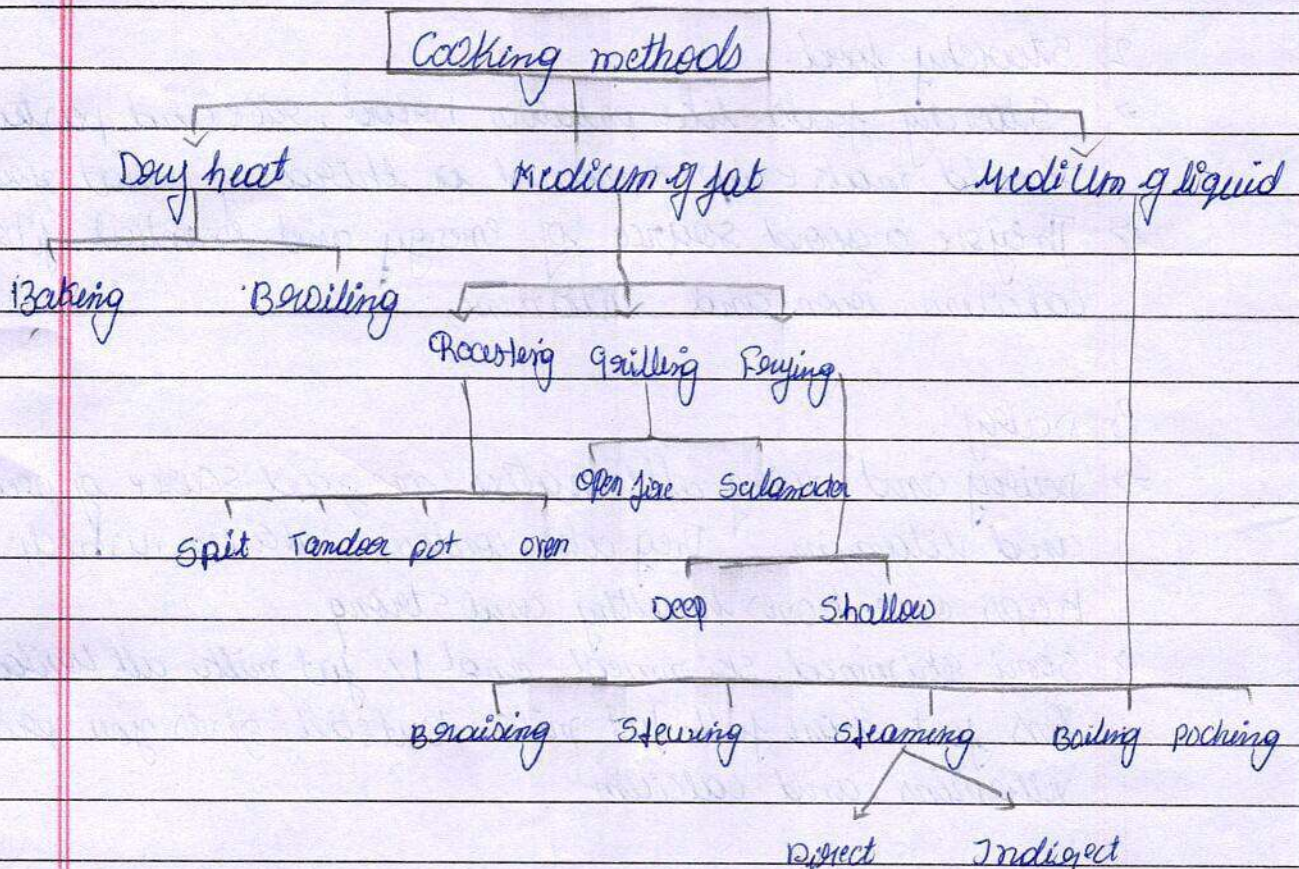 Cooking methods
Dry heat Medium of fat Medium of liquid
Baking Broiling
Roasting Grilling Frying
Open fire Salamader
Spit Tandoor pot oven
Deep Shallow
Braising Stewing Steaming Boiling poching
Direct Indirect